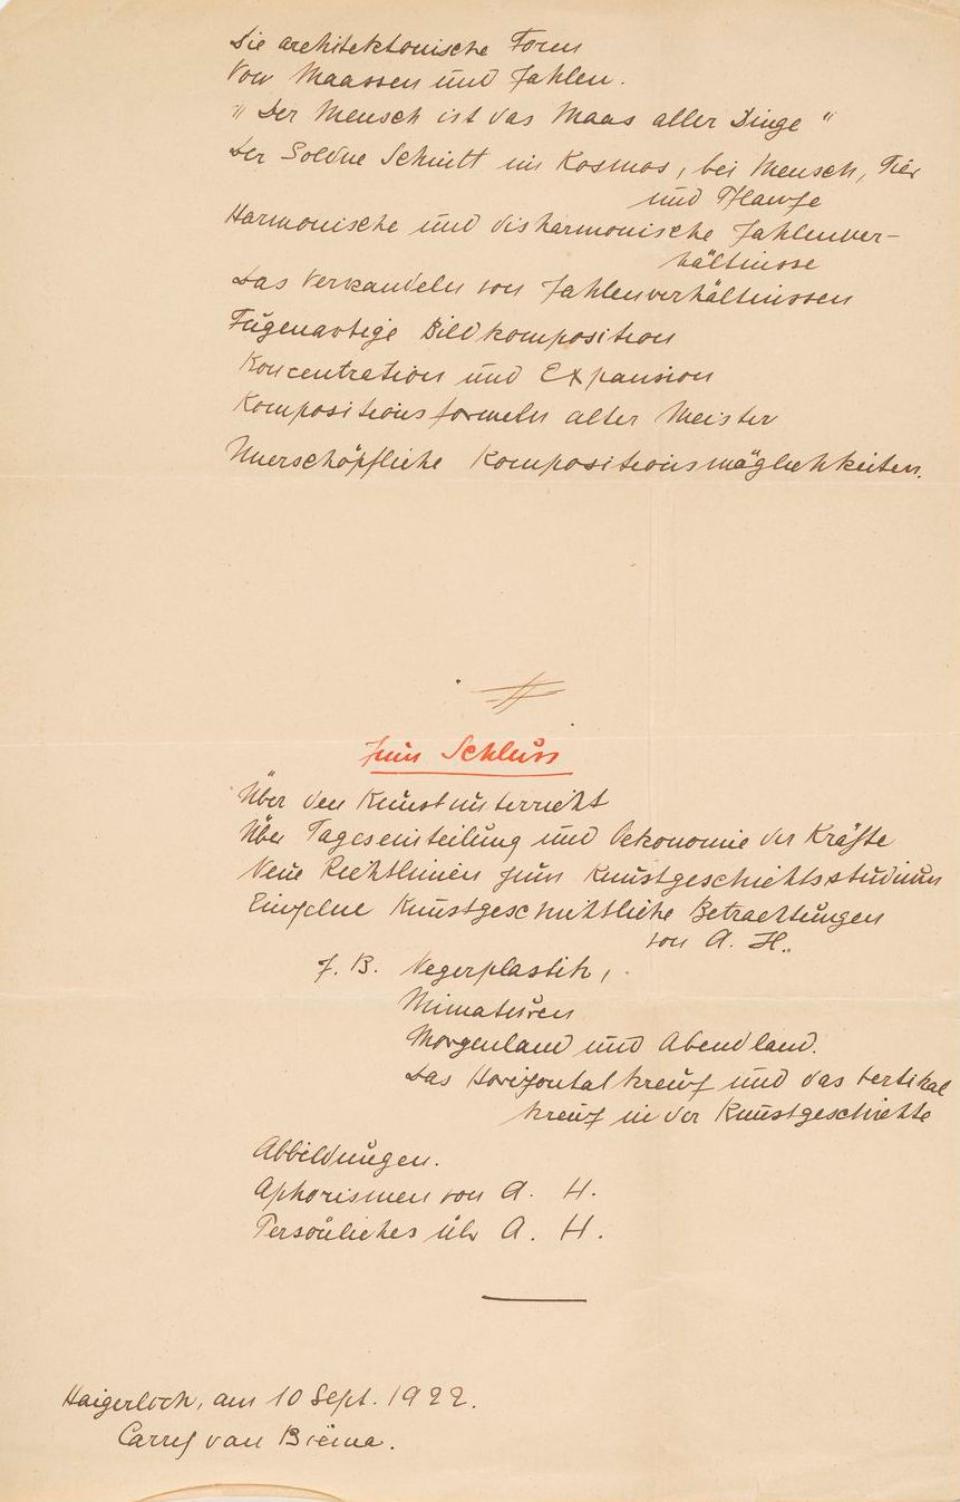 Die architektonische Form
Von Maassen und Zahlen.
"Der Mensch ist das Maas aller Dinge"
Der Goldne Schnitt im Kosmos, bei Mensch, Tier
und Pflanze
Harmonische und disharmonische Zahlenver-
hältnisse
Das Verwandeln von Zahlenverhältnissen
Fugenartige Bildkomposition
Koncentration und Expansion
Kompositionsformeln alter Meister
Unerschöpfliche Kompositionsmöglichkeiten.
Zum Schluss
Über den Kunstunterricht
Über Tageseinteilung und Oekonomie der Kräfte
Neue Richtlinien zum Kunstgeschichtsstudium
Einzelne Kunstgeschichtliche Betrachtungen
von A. H.
z. B. Negerplastik,
Miniaturen
Morgenland und Abendland.
Das Horizontalkreuz und das Vertikal
kreuz in der Kunstgeschichte
Abbildungen.
Aphorismen von A. H.
Persönliches über A. H.
Haigerloch, am 10 Sept. 1922.
Carry van Biëma.